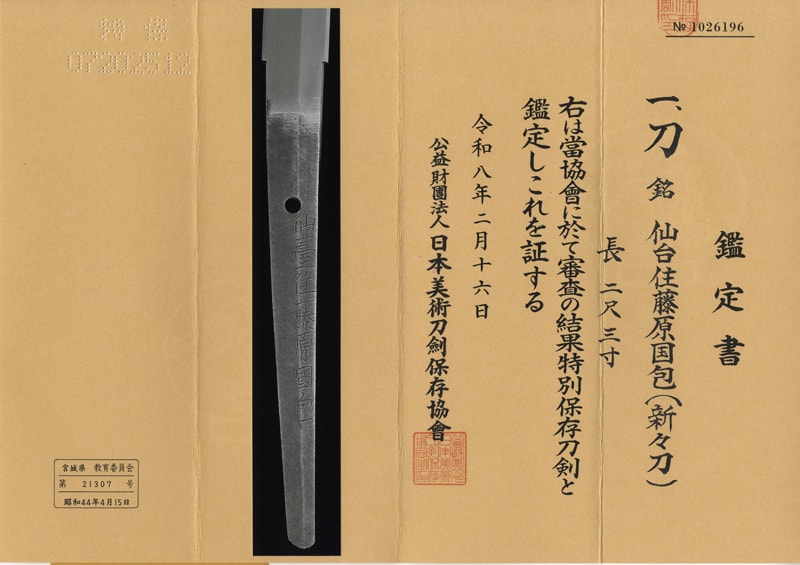 № 1026196
鑑定書
一、刀 銘 仙台住藤原国包(新々刀)
長 二尺三寸
右は當協會に於て審査の結果特別保存刀剣と
鑑定しこれを証する
令和八年二月十六日
公益財團法人 日本美術刀劍保存協會
仙臺住藤原國包
07202512
宮城県 教育委員会
第 21307 号
昭和44年4月15日